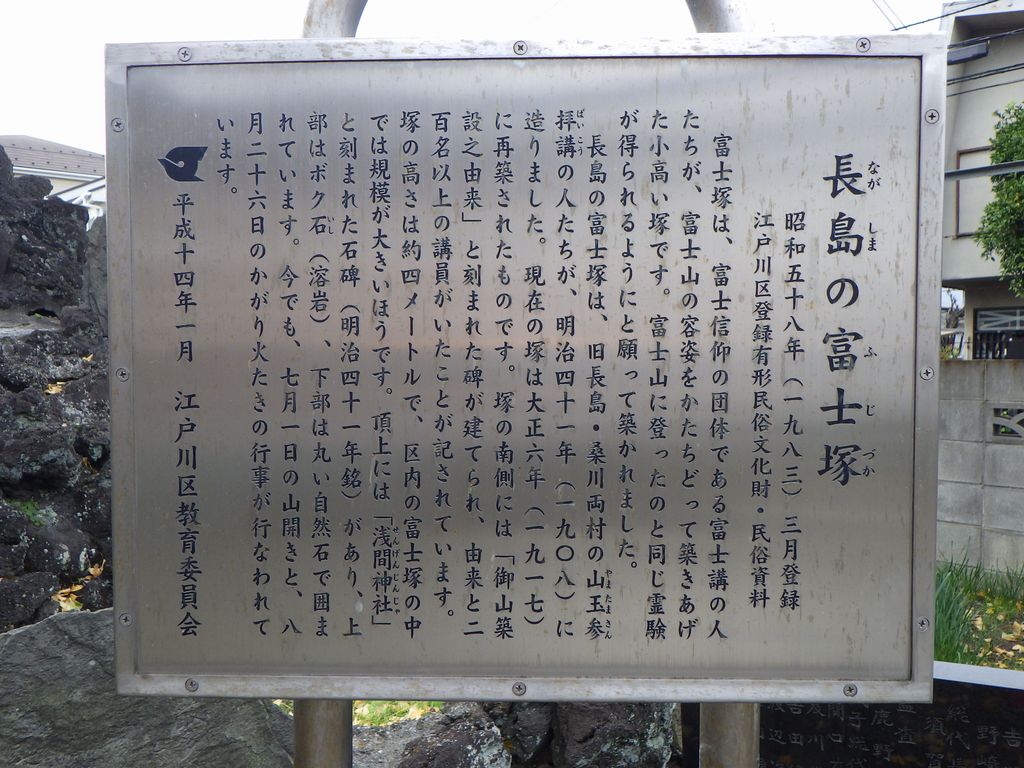 長島の富士塚
ながしま ふじづか
昭和五十八年（一九八三）三月登録
江戸川区登録有形民俗文化財・民俗資料
富士塚は、富士信仰の団体である富士講の人
たちが、富士山の容姿をかたちどって築きあげ
た小高い塚です。富士山に登ったのと同じ霊験
が得られるようにと願って築かれました。
長島の富士塚は、旧長島・桑川両村の山玉参
やまたまさん
拝講の人たちが、明治四十一年（一九〇八）に
ばいこう
造りました。現在の塚は大正六年（一九一七）
に再築されたものです。塚の南側には「御山築
設之由来」と刻まれた碑が建てられ、由来と二
百名以上の講員がいたことが記されています。
塚の高さは約四メートルで、区内の富士塚の中
では規模が大きいほうです。頂上には「浅間神社」
せんげんじんじゃ
と刻まれた石碑（明治四十一年銘）があり、上
部はボク石（溶岩）、下部は丸い自然石で囲ま
いし
れています。今でも、七月一日の山開きと、八
月二十六日のかがり火たきの行事が行なわれて
います。
平成十四年一月 江戸川区教育委員会